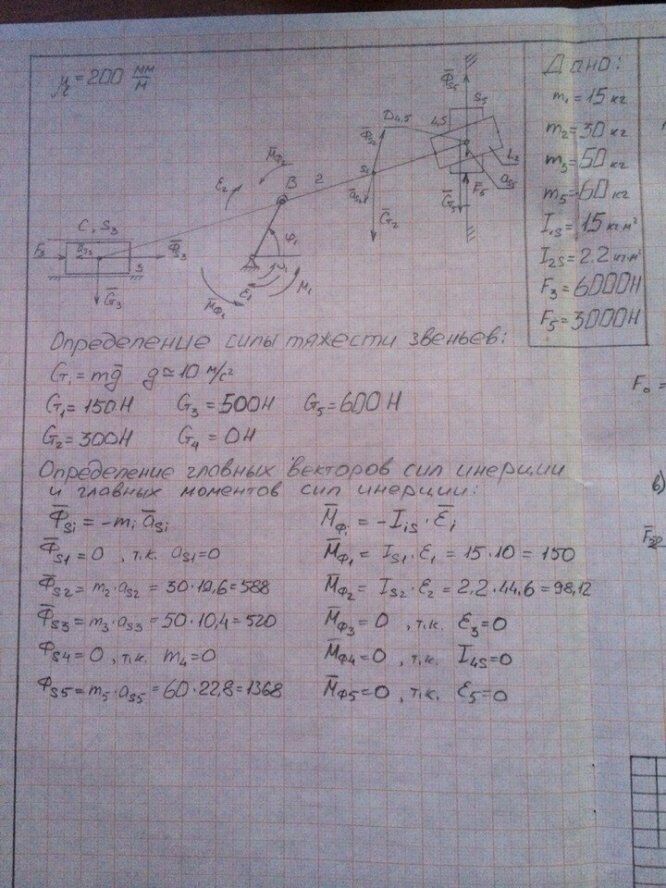 μl = 200 мм/м
Дано:
m1 = 15 кг
m2 = 30 кг
m3 = 50 кг
m5 = 60 кг
I1S = 15 кг·м²
I2S = 2.2 кг·м²
F3 = 6000Н
F5 = 3000Н
Φ̄S5
S5
D4,5
4,5
Φ̄S2
S2
āS2
Ḡ2
F̄5
Ḡ5
aS5
M̄Φ2
ε2
B
2
φ1
A
ω1
ε1
M1
M̄Φ1
C, S3
F3
aS3
3
Φ̄S3
Ḡ3
Определение силы тяжести звеньев:
Gi = mḡ g ≈ 10 м/с²
G1 = 150Н G3 = 500Н G5 = 600Н
G2 = 300Н G4 = 0Н
Определение главных векторов сил инерции
и главных моментов сил инерции:
Φ̄Si = -mi āSi M̄Φi = -IiS · ε̄i
Φ̄S1 = 0 , т.к. aS1 = 0 M̄Φ1 = IS1 · ε1 = 15·10 = 150
Φ̄S2 = m2·aS2 = 30·19,6 = 588 M̄Φ2 = IS2 · ε2 = 2.2·44,6 = 98,12
Φ̄S3 = m3·aS3 = 50·10,4 = 520 M̄Φ3 = 0 , т.к. ε3 = 0
Φ̄S4 = 0 , т.к. m4 = 0 M̄Φ4 = 0 , т.к. I4S = 0
ΦS5 = m5·aS5 = 60·22,8 = 1368 M̄Φ5 = 0 , т.к. ε5 = 0
F0 =
в)